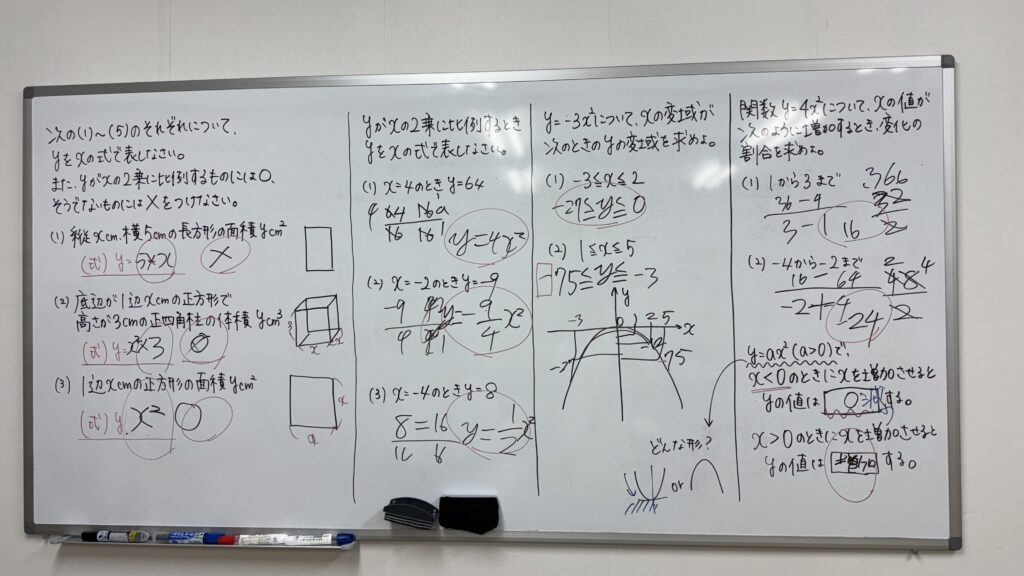 次の(1)~(5)のそれぞれについて、
yをxの式で表しなさい。
また、yがxの2乗に比例するものには○、
そうでないものには×をつけなさい。
(1) 縦xcm、横5cmの長方形の面積ycm²
(式) y=5×x ×
(2) 底辺が1辺xcmの正方形で
高さが3cmの正四角柱の体積ycm³
(式) y=x²×3 ○
3
x
(3) 1辺xcmの正方形の面積ycm²
(式) y x² ○
x
x
yがxの2乗に比例するとき
yをxの式で表しなさい。
(1) x=4のときy=64
y=4x²
(2) x=-2のときy=-9
y=-9/4x²
(3) x=-4のときy=8
8=16
y=1/2x²
y=-3x²について、xの変域が
次のときのyの変域を求めよ。
(1) -3≦x≦2
-27≦y≦0
(2) 1≦x≦5
-75≦y≦-3
y
-3 0 1 2 5 x
75
どんな形?
or
関数y=4x²について、xの値が
次のように増加するとき、変化の
割合を求めよ。
(1) 1から3まで
36-9
3-1 16
(2) -4から-2まで
16-64
-2+4
-24
y=ax²(a>0)で、
x<0のときにxを増加させると
yの値は する。
x>0のときにxを増加させると
yの値は 増加 する。